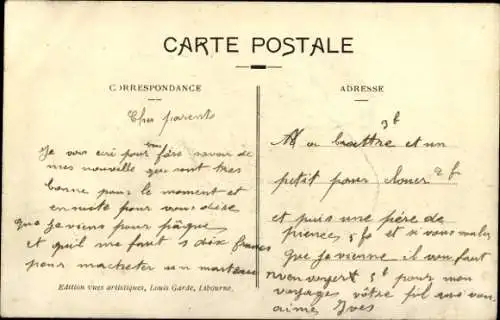 CARTE POSTALE
CORRESPONDANCE
ADRESSE
Cher parents
Je vous cri pour vous fairs savoir de
mes nouvelle que sont tres
bonne pour le moment et
ensuite pour vous dire
que je viens pour pâque
et quil me faut s dix francs
pour macheter un marteau
3 f
a battre et un
petit pour clouer 2 fr
et puis une pére de
piences 5 fr et si vous voulez
que je vienne il vou faut
menvoyert 5 f pour mon
voyage vôtre fil qui vou
aime Yves
Edition vues artistiques, Louis Garde, Libourne.